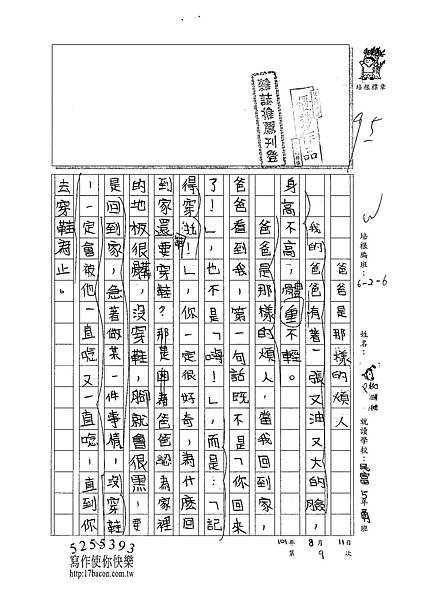 爸爸是那樣的煩人
我的爸爸有著一張又油又大的臉，
身高不高，體重不輕。
爸爸是那樣的煩人，當我回到家，
爸爸看到我，第一句話既不是「你回來
了！」，也不是「嗨！」，而是：「記
得穿鞋！」，你一定很好奇，為什麼回
到家還要穿鞋？那是因為爸爸認為家裡
的地板很髒，沒穿鞋，腳就會很黑，要
是回到家，急著做某一件事情，沒穿鞋
，一定會被他一直唸又一直唸，直到你
去穿鞋為止。
培根標章
95
培根編班：6-2-6
姓名：
就讀學校：
班
101年8月11日
第9次
5255393
寫作使你快樂
http://17bacon.com.tw